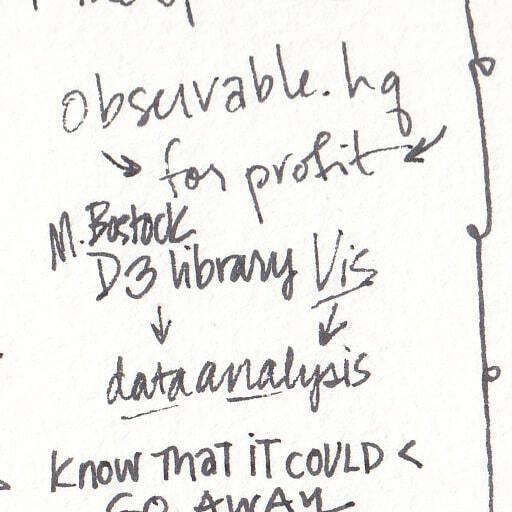 observable.hq
for profit
M. Bostock
D3 library Vis
data analysis
KNOW THAT IT COULD <
GO AWAY